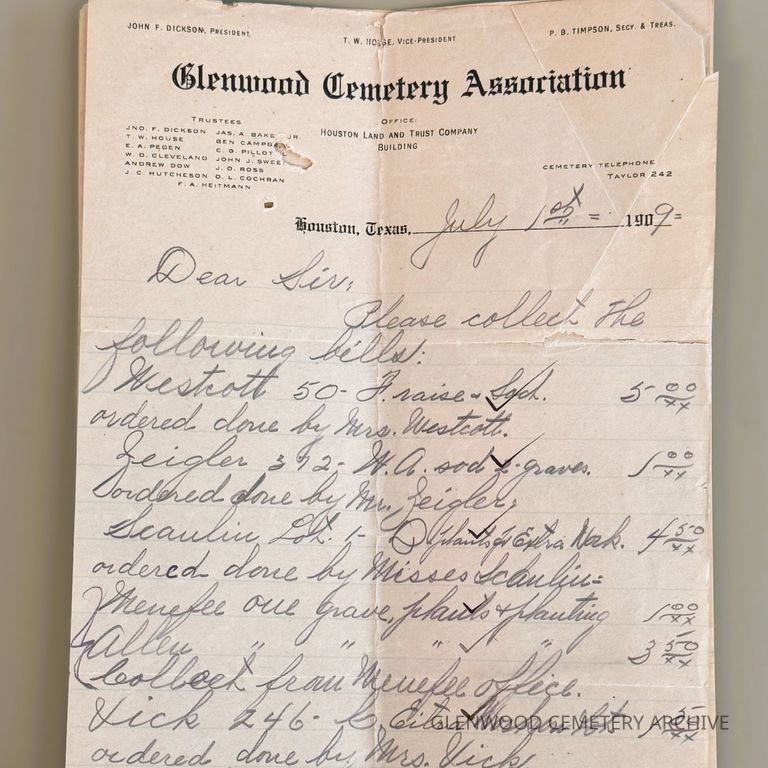 JOHN F. DICKSON, PRESIDENT.
T. W. HOUSE, VICE-PRESIDENT
P. B. TIMPSON, SECY. & TREAS.
Glenwood Cemetery Association
TRUSTEES
JNO. F. DICKSON JAS. A. BAKER JR.
T. W. HOUSE BEN CAMPBELL
E. A. PEDEN C. G. PILLOT
W. D. CLEVELAND JOHN J. SWEE
ANDREW DOW J. O. ROSS
J. C. HUTCHESON O. L. COCHRAN
F. A. HEITMANN
OFFICE:
HOUSTON LAND AND TRUST COMPANY
BUILDING
CEMETERY TELEPHONE
TAYLOR 242
Houston, Texas, July 1st = 1909=
Dear Sir,
Please collect the
following bills:
Westcott 50- F. raise & Sod. 5 00/xx
ordered done by Mrs. Westcott.
Zeigler 392- H.A. sod 2 graves. 1 00/xx
ordered done by Mr. Zeigler,
Scanlin Lot. 1- plants & Extra Work. 4 50/xx
ordered done by Misses Scanlin=
Menefee one grave, plants & planting 1 00/xx
Allen " " " " 3 50/xx
Collect from Menefee office.
Vick 246- C,
ordered done by Mrs. Vick
GLENWOOD CEMETERY ARCHIVE